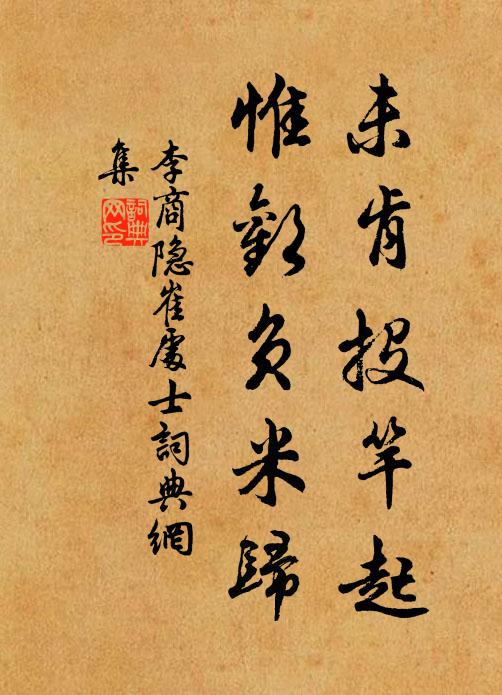 未肯投竿起
惟歡负米歸
李商隐崔處士詞典網
集
詞典
网印